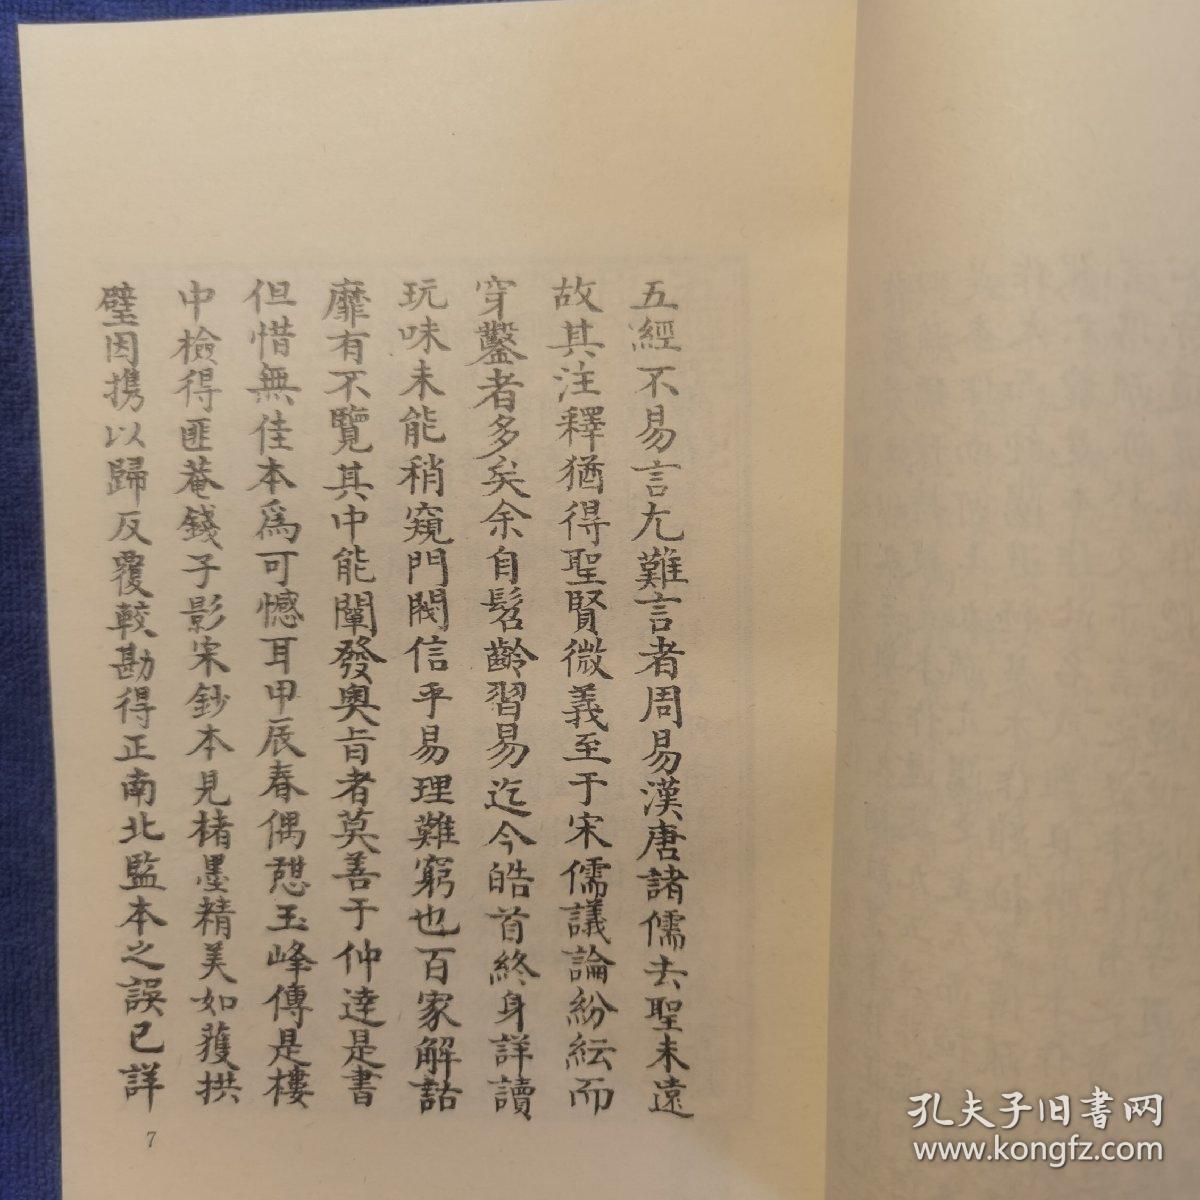 五經不易言尤難言者周易漢唐諸儒去聖未遠
故其注釋猶得聖賢微義至于宋儒議論紛紜而
穿鑿者多矣余自髫齡習易迄今皓首終身詳讀
玩味未能稍窺門閥信乎易理難窮也百家解詁
靡有不覽其中能闡發奧旨者莫善于仲達是書
但惜無佳本爲可憾耳甲辰春偶憩玉峰傳是樓
中檢得匪菴錢子影宋鈔本見楮墨精美如獲拱
璧因携以歸反覆較勘得正南北監本之誤已詳
7
孔夫子旧書网
www.kongfz.com